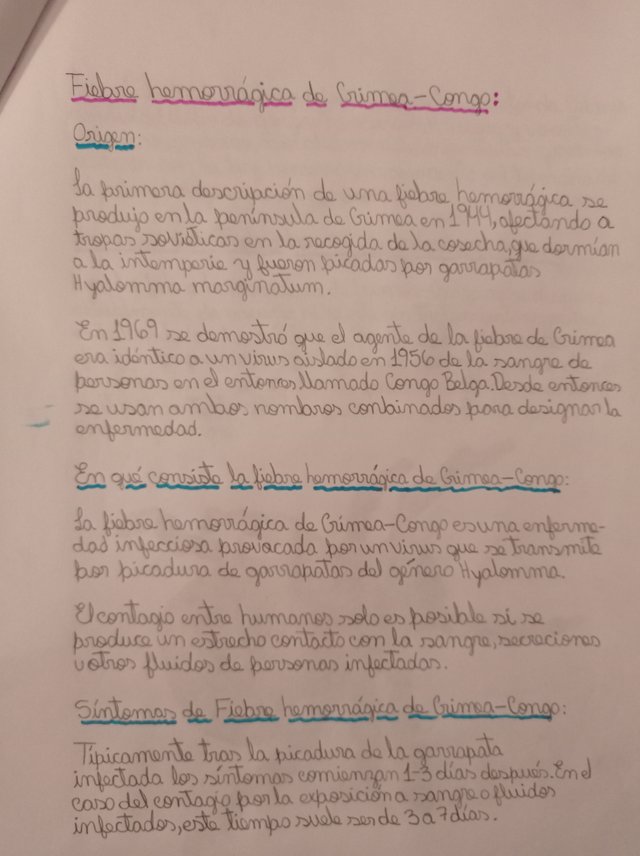 Fiebre hemorrágica de Crimea-Congo:
Origen:
La primera descripción de una fiebre hemorrágica se
produjo en la península de Crimea en 1944, afectando a
tropas soviéticas en la recogida de la cosecha, que dormían
a la intemperie y fueron picadas por garrapatas
Hyalomma marginatum.
En 1969 se demostró que el agente de la fiebre de Crimea
era idéntico a un virus aislado en 1956 de la sangre de
personas en el entonces llamado Congo Belga. Desde entonces
se usan ambos nombres combinados para designar la
enfermedad.
En qué consiste la fiebre hemorrágica de Crimea-Congo:
La fiebre hemorrágica de Crimea-Congo es una enferme-
dad infecciosa provocada por un virus que se transmite
por picadura de garrapatas del género Hyalomma.
El contagio entre humanos solo es posible si se
produce un estrecho contacto con la sangre, secreciones
u otros fluidos de personas infectadas.
Síntomas de Fiebre hemorrágica de Crimea-Congo:
Típicamente tras la picadura de la garrapata
infectada los síntomas comienzan 1-3 días después. En el
caso del contagio por la exposición a sangre o fluidos
infectados, este tiempo suele ser de 3 a 7 días.